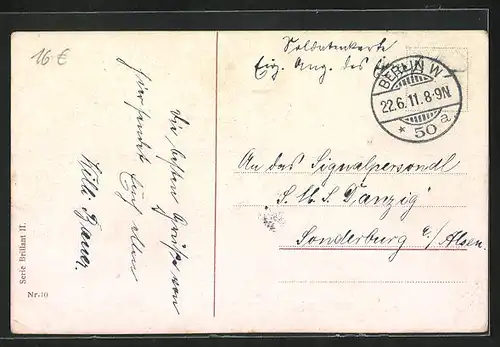 16 €
Soldatenkarte
Eig. Ang. des
BERLIN W
22.6.11.8-9N
* 50 a
An das Signalpersonal
S.M.S. Danzig
Sonderburg a/Alsen.
Die besten Grüße von
hier sendet Euch allen
Willi Bauer.
Serie Brillant II.
Nr. 10